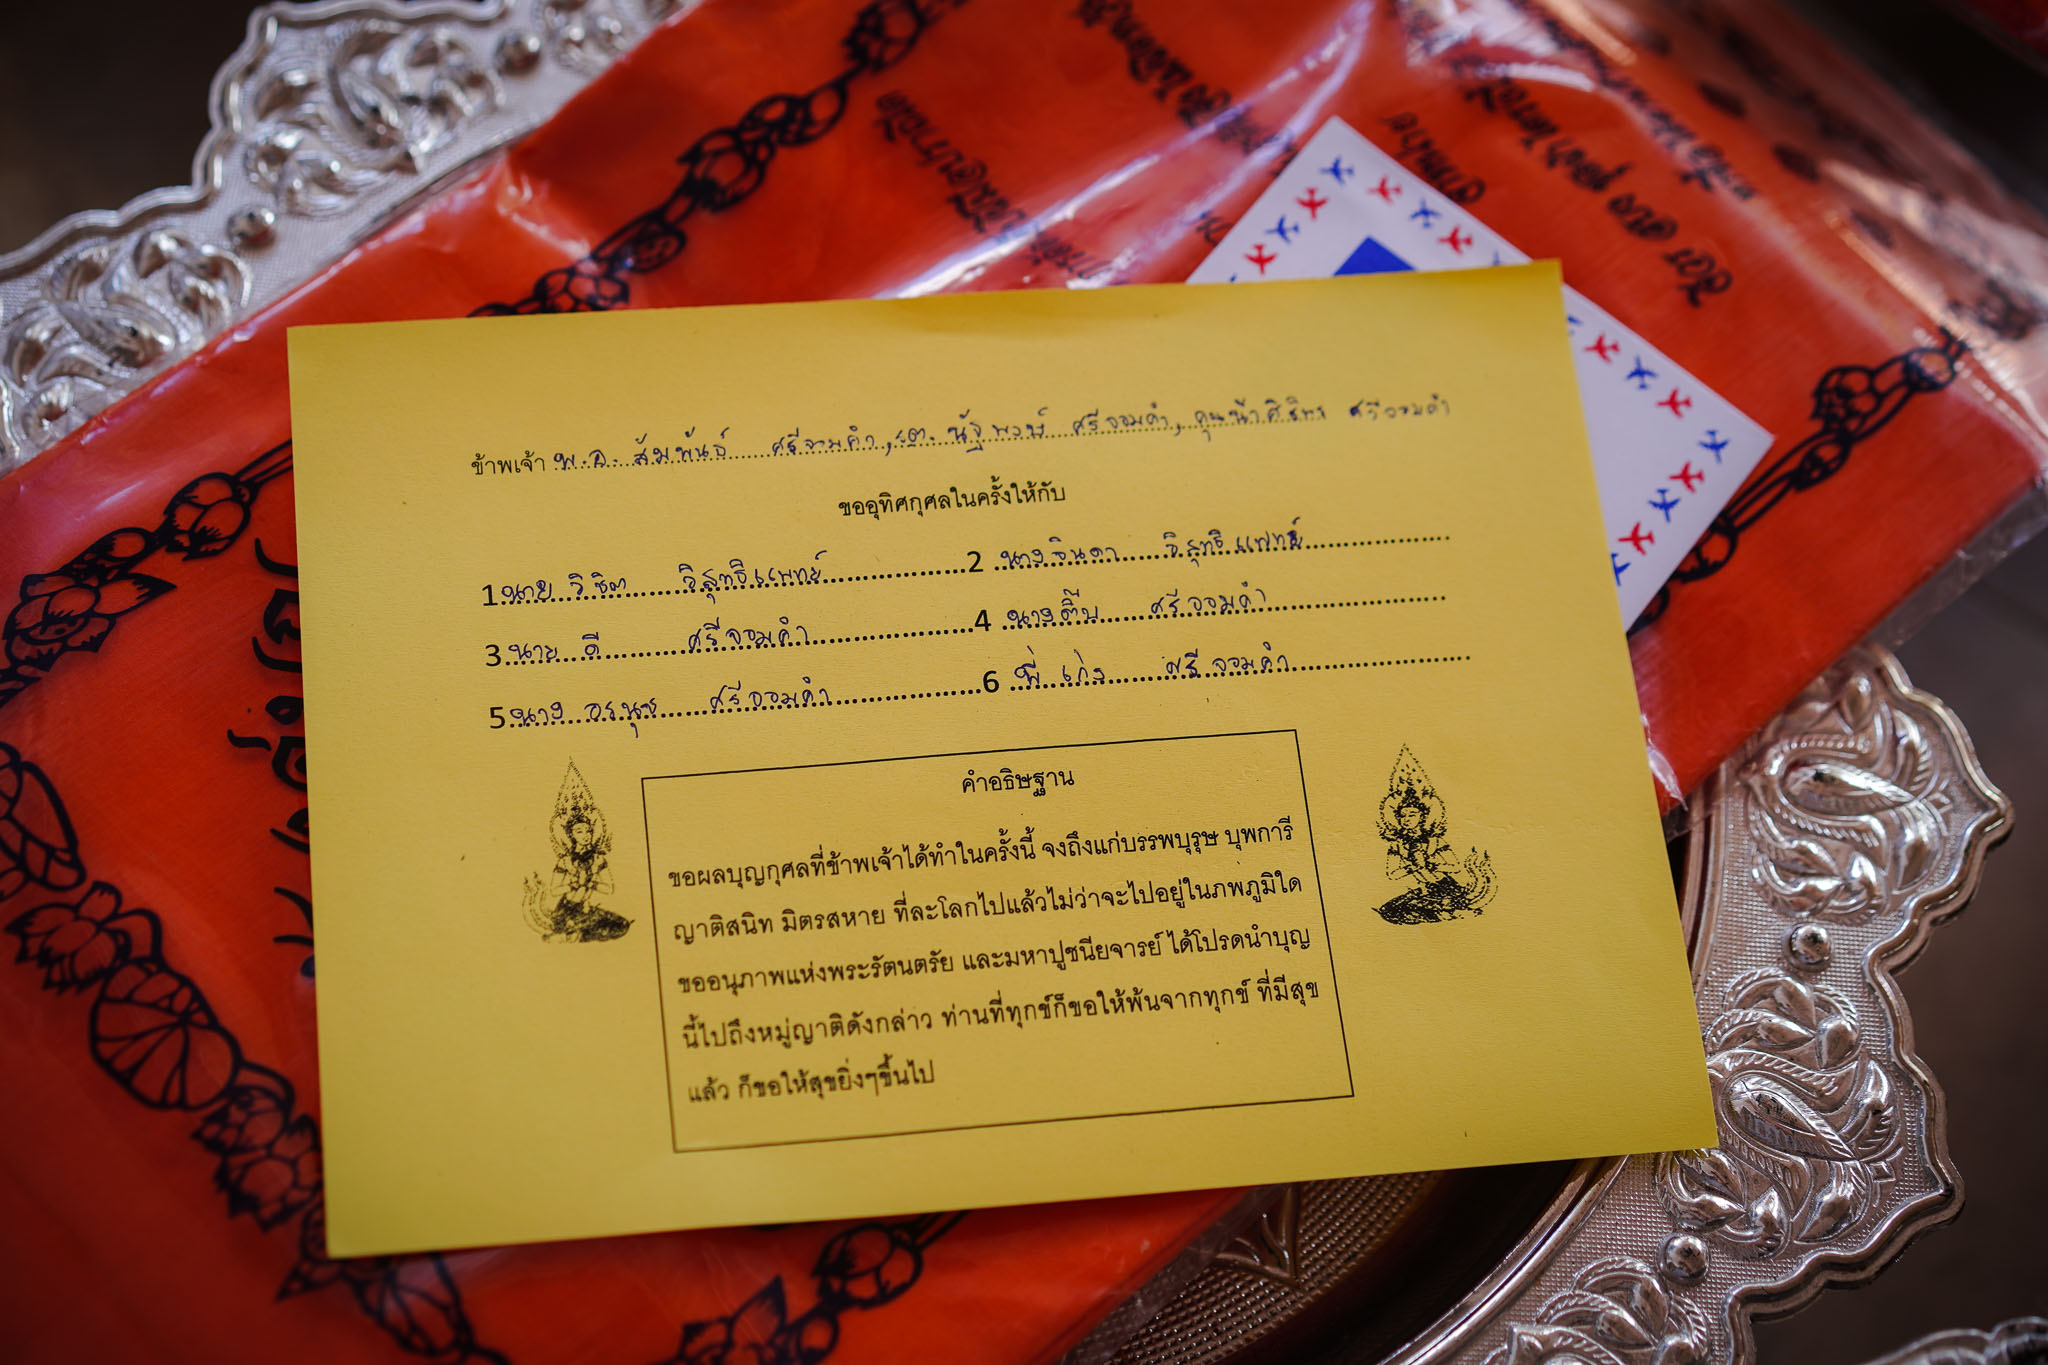 ข้าพเจ้า พ.อ. สัมพันธ์ ศรีจอมคำ, รต. นัฐพงษ์ ศรีจอมคำ, คุณน้าศิริพร ศรีจอมคำ
ขออุทิศกุศลในครั้งให้กับ
1 นาย วิชิต วิสุทธิแพทย์ 2 นางจินดา วิสุทธิแพทย์
3 นาย ดี ศรีจอมคำ 4 นางติ๊บ ศรีจอมคำ
5 นาง อรนุช ศรีจอมคำ 6 พี่ เก่ง ศรีจอมคำ
คำอธิษฐาน
ขอผลบุญกุศลที่ข้าพเจ้าได้ทำในครั้งนี้ จงถึงแก่บรรพบุรุษ บุพการี
ญาติสนิท มิตรสหาย ที่ละโลกไปแล้วไม่ว่าจะไปอยู่ในภพภูมิใด
ขออนุภาพแห่งพระรัตนตรัย และมหาปูชนียจารย์ ได้โปรดนำบุญ
นี้ไปถึงหมู่ญาติดังกล่าว ท่านที่ทุกข์ก็ขอให้พ้นจากทุกข์ ที่มีสุข
แล้ว ก็ขอให้สุขยิ่งๆขึ้นไป